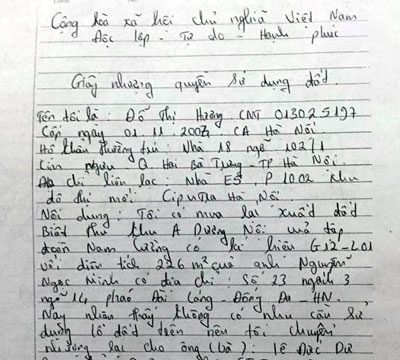 Cộng hòa xã hội chủ nghĩa Việt Nam
Độc lập - Tự do - Hạnh phúc
Giấy nhượng quyền sử dụng đất.
Tên tôi là: Đỗ Thị Hương CMT 013025197
Cấp ngày 01.11.2007 CA Hà Nội.
Hộ khẩu thường trú: Nhà 18 ngõ 1027/1
Kim ngưu Q. Hai Bà Trưng - TP Hà Nội.
Địa chỉ liên lạc: Nhà E5 P 1002 khu
đô thị mới: Ciputra Hà Nội.
Nội dung: Tôi có mua lại xuất đất
Biệt thự khu A Dương Nội của tập
đoàn Nam Cường có ký hiệu G12-L01
với diện tích 226 m² của anh Nguyễn
Ngọc Minh có địa chỉ: Số 23 ngách 3
ngõ 14 pháo Đài Láng - Đống Đa - HN.
Nay nhận thấy không có nhu cầu sử
dụng lô đất trên nên tôi chuyển
nhượng lại cho ông (bà): Lê Đắc Dư